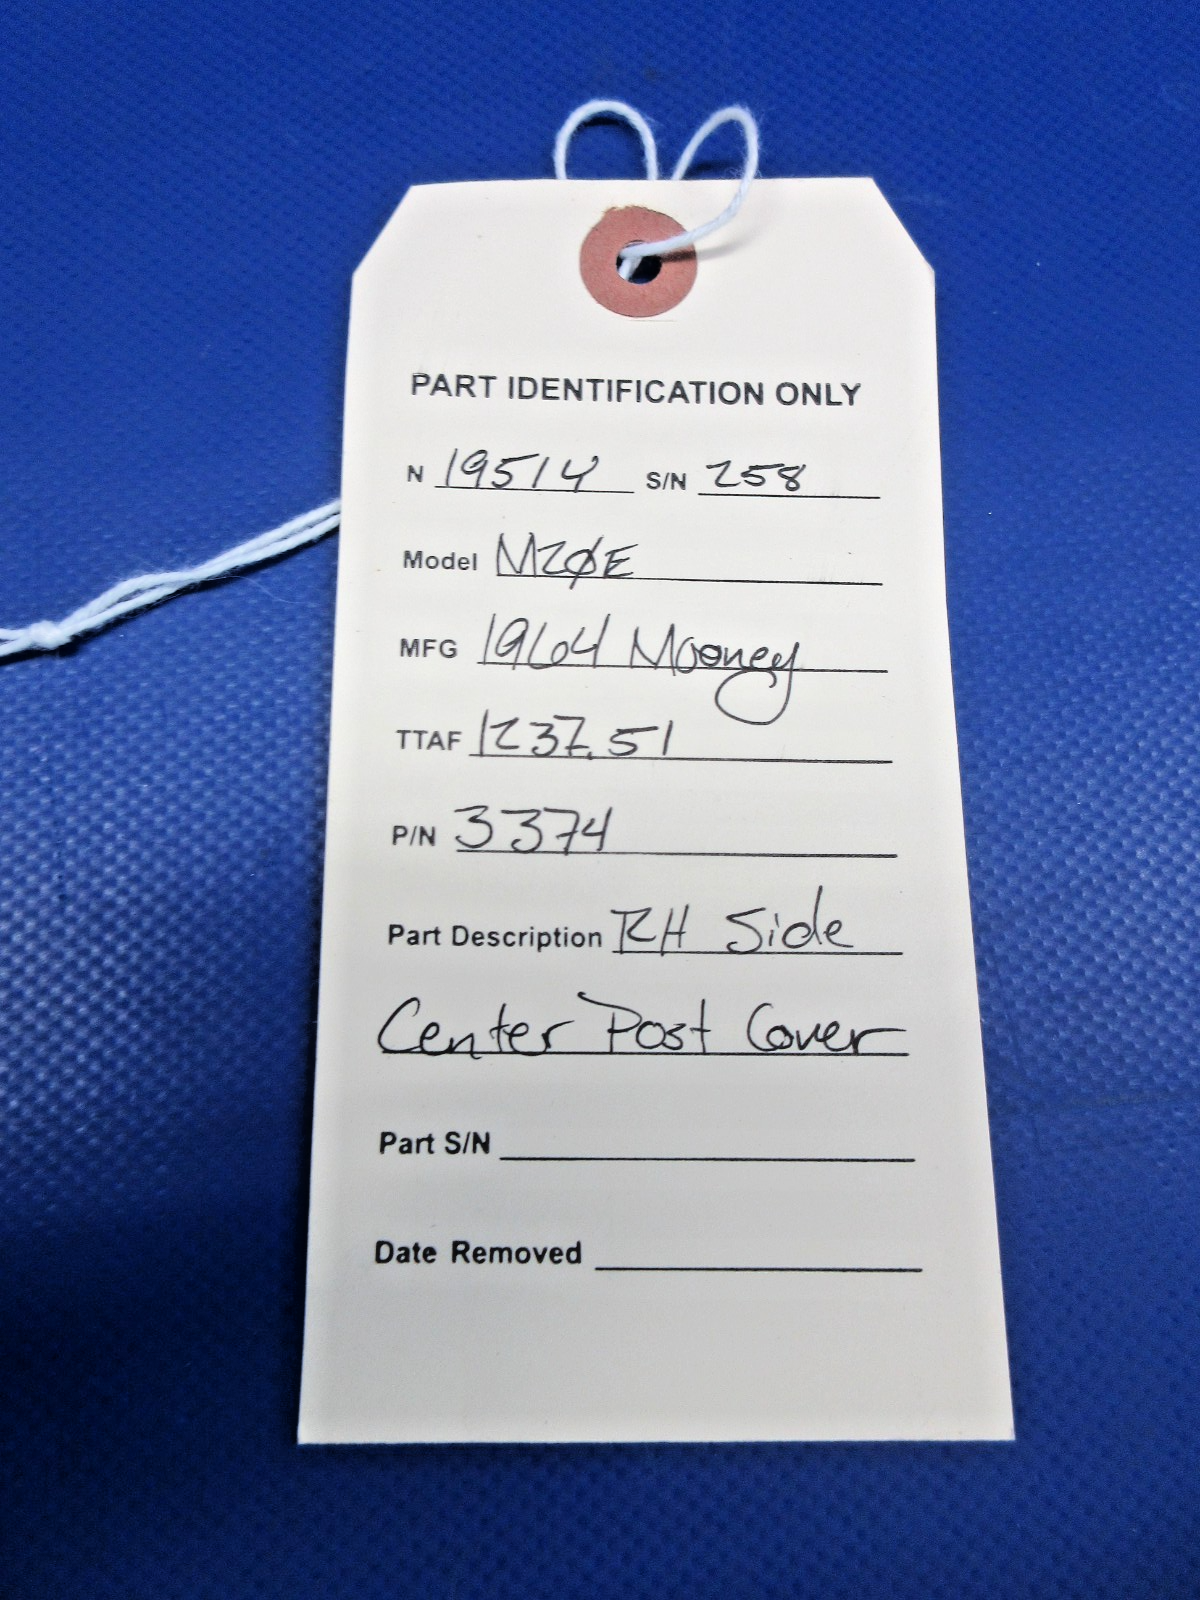 PART IDENTIFICATION ONLY
N 19514 S/N 258
Model M2ØE
MFG 1964 Mooney
TTAF 1237.51
P/N 3374
Part Description RH Side
Center Post Cover
Part S/N
Date Removed